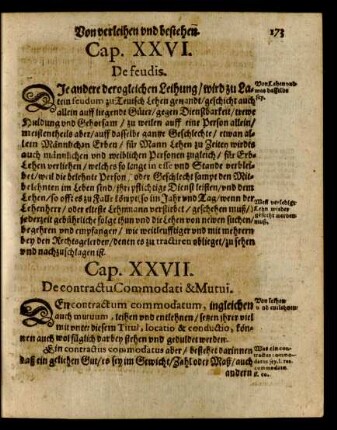 Von verleihen vnd bestehen. 173
Cap. XXVI.
De feudis.
DIe andere derogleichen Leihung / wird zu La-
tein feudum zu Teutsch Lehen genandt / geschicht auch
allein auff liegende Güter / gegen Dienstbarkeit / trewe
Huldung vnd Gehorsam / zu weilen auff eine Person allein /
meistentheils aber / auff dasselbe gantze Geschlechte / etwan al-
lein Männlichen Erben / für Mann Lehen zu Zeiten wirdts
auch männlichen vnd weiblichen Personen zugleich / für Erb-
Lehen verliehen / welches so lang in esse vnd Stande verblei-
bet / weil die belehnte Person / oder Geschlecht sampt den Mit-
belehnten im Leben sind / ihr pflichtige Dienst leisten / vnd dem
Lehen / so offt es zu Falle kömpt / so im Jahr vnd Tag / wenn der
Lehenherr / oder elteste Lehnmann verstirbt / geschehen muß /
jederzeit gebührliche folge thun vnd die Lehen von newen suchen /
begehren vnd empfangen / wie weitleufftiger vnd mit mehrern
bey den Rechtsgelerden / denen es zu tractiren oblieget / zu sehen
vnd nachzuschlagen ist.
Von Lehen vnd
was dasselbe
sey.
Weß verledigt
Lehn wieder
gesucht werden
muß.
Cap. XXVII.
De contractu Commodati & Mutui.
DEn contractum commodatum, ingleichen
auch mutuum, leihen vnd entlehnen / setzen ihrer viel
mit vnter diesem Titul, locatio & conductio, kön-
nen auch wol füglich darbey stehen vnd geduldet werden.
Ein contractus commodatus aber / bestehet darinnen
daß ein geliehen Gut / es sey im Gewicht / Zahl oder Maß / auch
andern
Von leihen
vnd entlehnen.
Was ein con-
tractus commo-
datus sey.